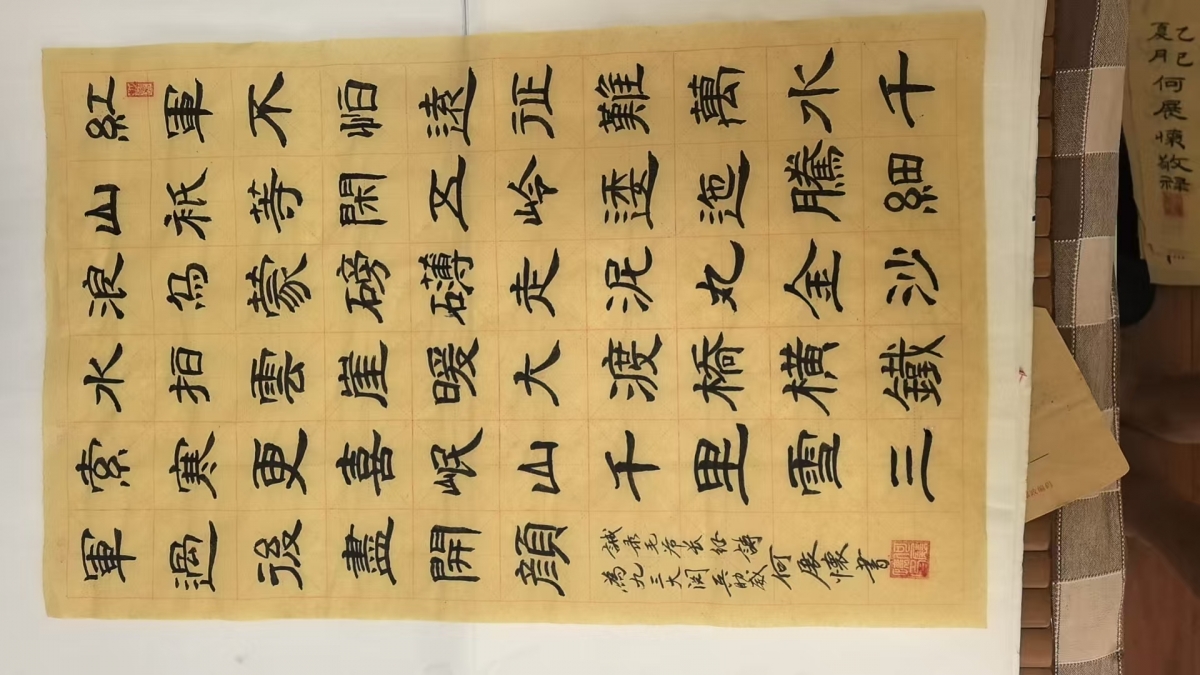 紅軍不怕遠征難萬水千
山祇等閑五岭逶迤騰細
浪烏蒙磅礴走泥丸金沙
水拍雲崖暖大渡橋橫鐵
索寒更喜岷山千里雪三
軍過後盡開顏
誠录毛澤長征詩
為九三大閱兵助威
何展懷書
乙巳
夏月何展懷敬禄